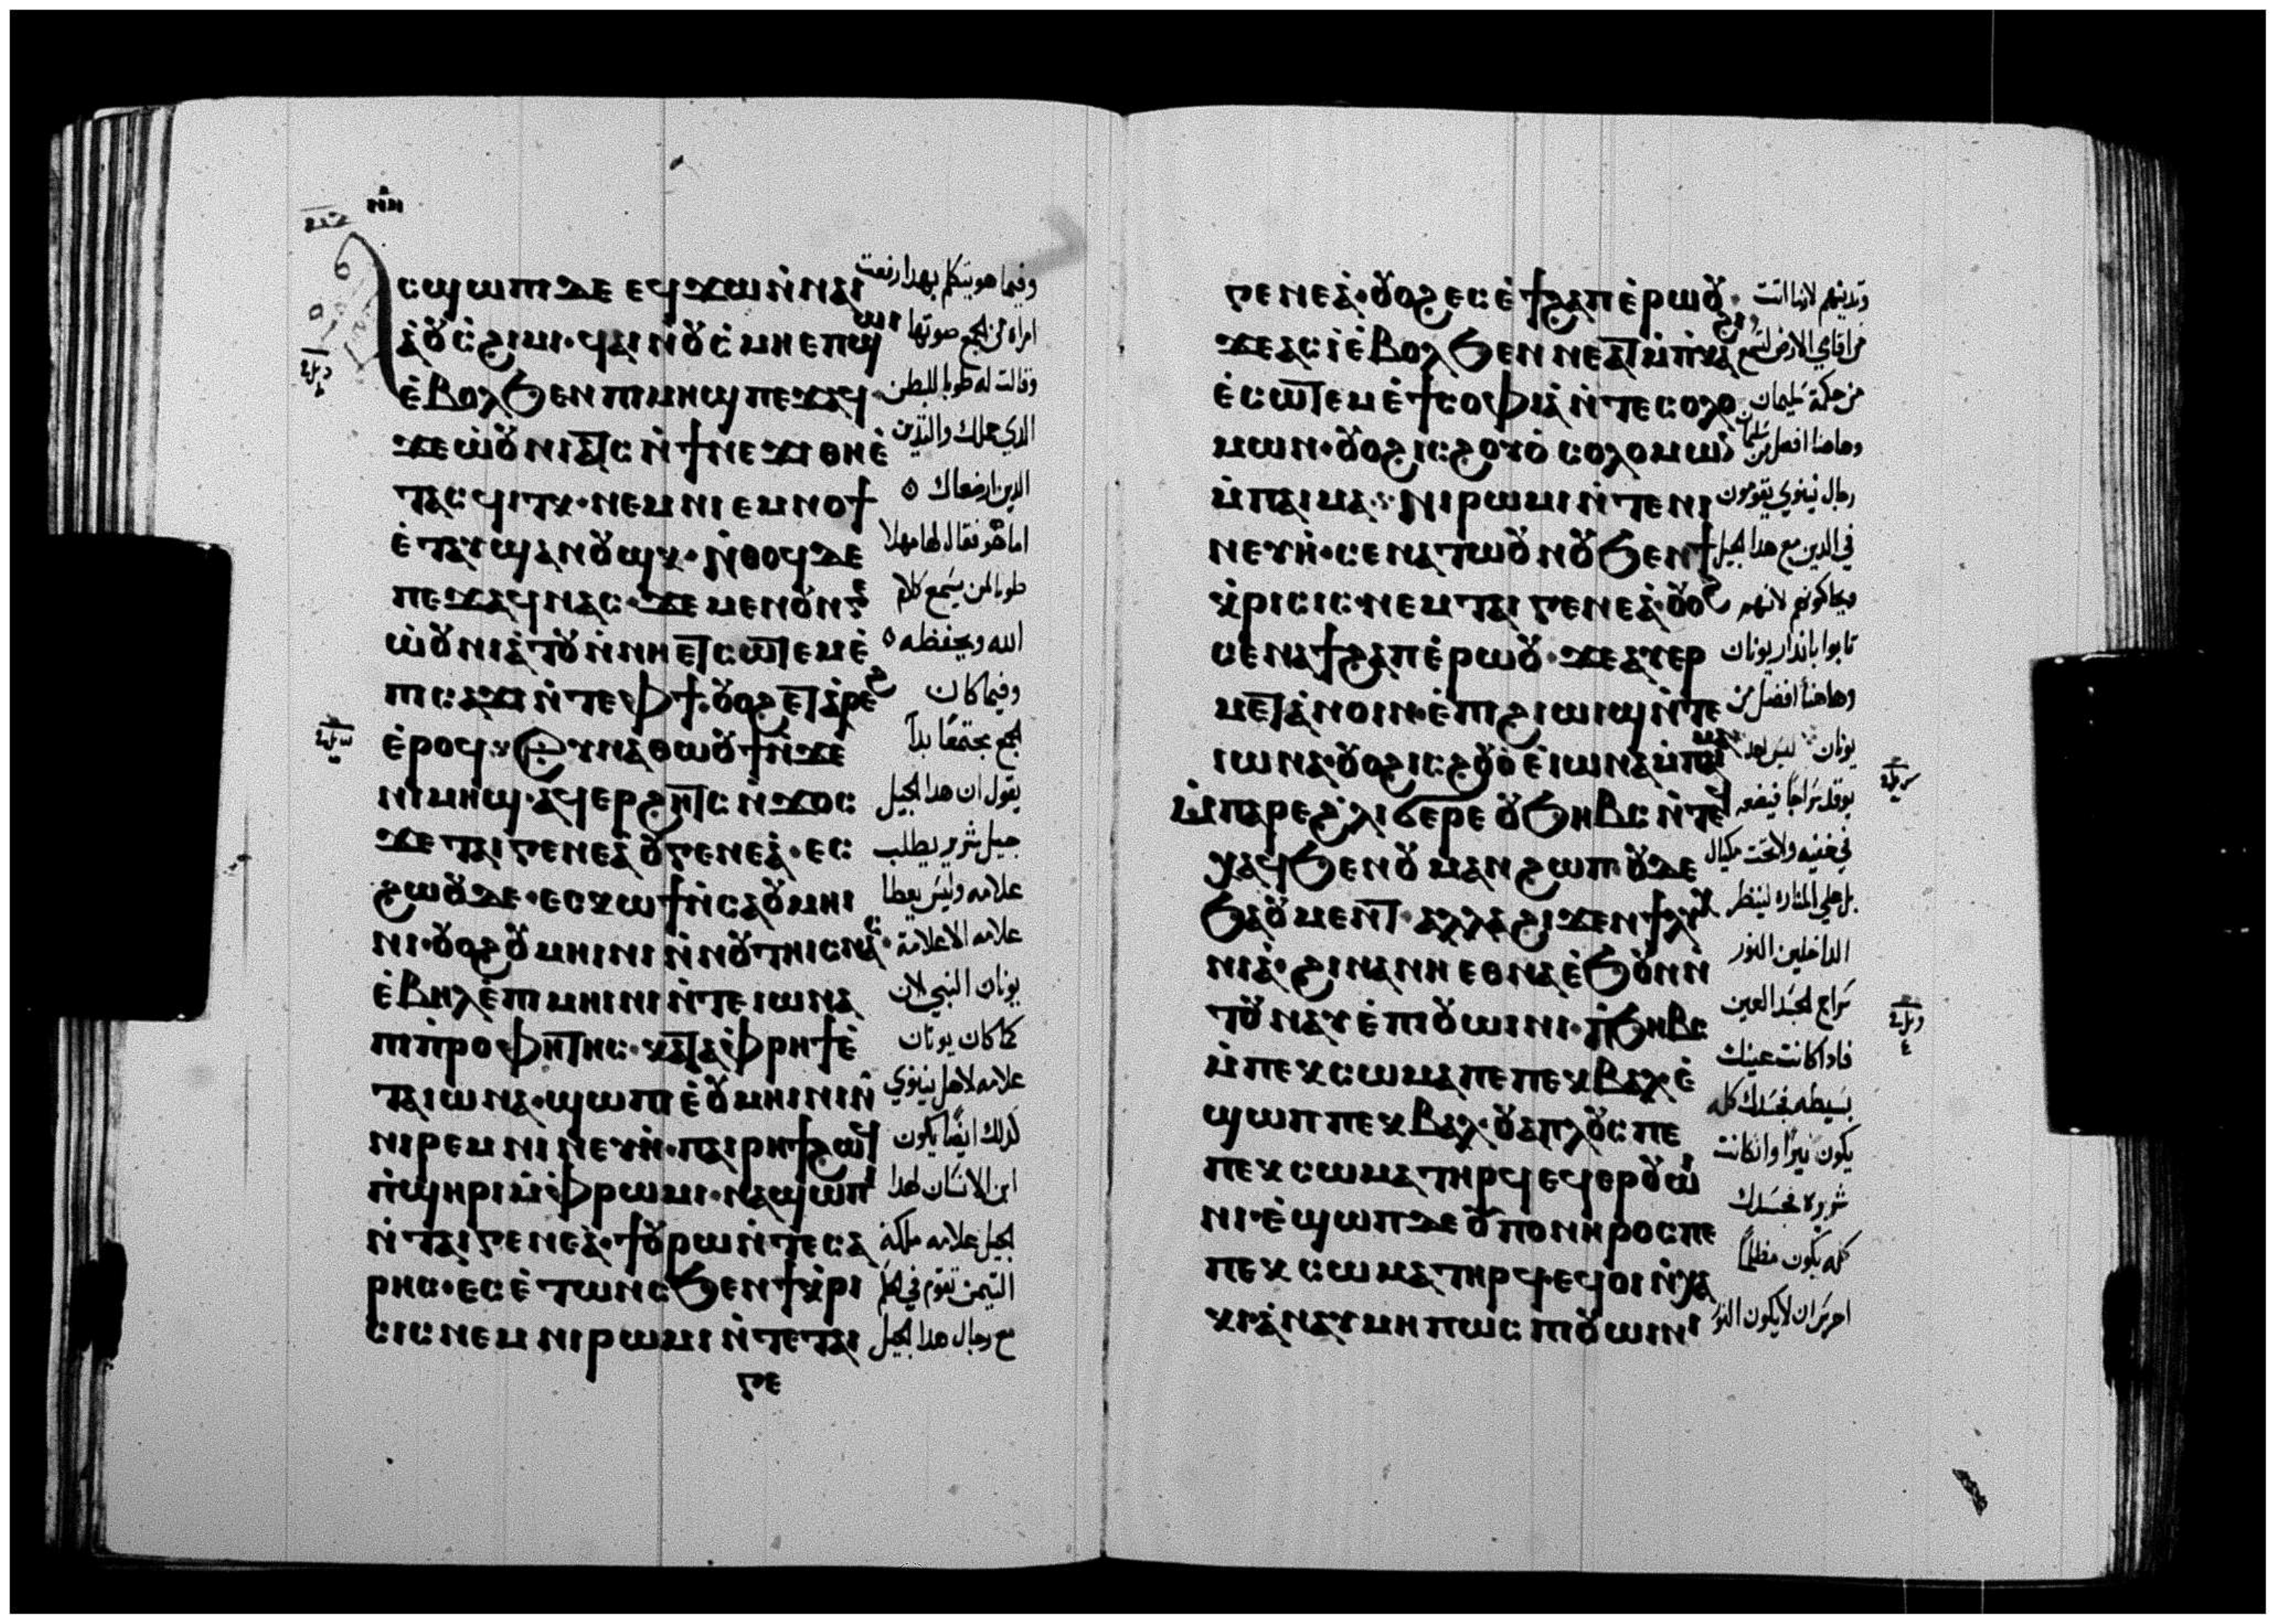 ⲁⲥϣⲱⲡⲓⲇⲉ ⲉϥϫⲱⲛ̀ⲛⲁⲓ
ⲁ̀ⲟⲩⲥ̀ϩⲓⲙⲓ·ϥⲁⲓⲛ̀ⲟⲩⲥ̀ⲙⲏⲉⲡϣⲱⲓ
ⲉ̀ⲃⲟⲗϧⲉⲛⲡⲓⲙⲏϣⲡⲉϫⲁϥ·
ϫⲉⲱ̀ⲟⲩⲛⲓⲁⲧⲥⲛ̀ϯⲛⲉϫⲓⲑⲏⲉ̀
ⲧⲁⲥϥⲓⲧⲭ·ⲛⲉⲙⲛⲓⲉⲙⲛⲟϯ
ⲉ̀ⲧⲁⲩϣⲁⲛⲟⲩϣⲭ·ⲛ̀ⲑⲟϥⲇⲉ
ⲡⲉϫⲁϥⲛⲁⲥ·ϫⲉⲙⲉⲛⲟⲩⲛⲅⲉ
ⲱ̀ⲟⲩⲛⲓⲁ̀ⲧⲟⲩⲛ̀ⲛⲏⲉⲧⲥⲱⲧⲉⲙⲉ̀
ⲡⲓⲥⲁϫⲓⲛ̀ⲧⲉⲫϯ·ⲟⲩⲟϩⲉⲧⲁ̀ⲣⲉϩ
ⲉ̀ⲣⲟϥ·ⲉⲩⲛⲁⲑⲱⲟⲩϯⲛ̀ϫⲉ
ⲛⲓⲙⲏϣ·ⲁϥⲉⲣϩⲏⲧⲥⲛ̀ϫⲟⲥ
ϫⲉⲧⲁⲓⲅⲉⲛⲉⲁ̀ⲟⲩⲅⲉⲛⲉⲁ̀·ⲉⲥ
ϩⲱⲟⲩⲇⲉ·ⲉⲥⲕⲱϯⲛ̀ⲥⲁⲟⲩⲙⲏⲓ
ⲛⲓ·ⲟⲩⲟϩⲟⲩⲙⲏⲓⲛⲓⲛ̀ⲛⲟⲩⲧⲏⲓⲥⲛⲁⲥ
ⲉ̀ⲃⲏⲗⲉ̀ⲡⲓⲙⲏⲓⲛⲓⲛ̀ⲧⲉⲓⲱⲛⲁ
ⲡⲓⲡ̀ⲣⲟⲫⲏⲧⲏⲥ·ⲕⲁⲧⲁ̀ⲫⲣⲏϯⲉ̀
ⲧⲁⲓⲱⲛⲁ·ϣⲱⲡⲓⲉ̀ⲟⲩⲙⲏⲓⲛⲓⲛ̀
ⲛⲓⲣⲉⲙⲛⲓⲛⲉⲩⲏ̀·ⲡⲁⲓⲣⲏϯϩⲱϥ
ⲡ̀ϣⲏⲣⲓⲙ̀ⲫⲣⲱⲙⲓ·ⲛⲁϣⲱⲡⲓ
ⲛ̀ⲧⲁⲓⲅⲉⲛⲉⲁ̀·ϯⲟⲩⲣⲱⲛ̀ⲧⲉⲥⲁ
ⲣⲏⲥ·ⲉⲥⲉ̀ⲧⲱⲛⲥϧⲉⲛϯⲕ̀ⲣⲓ
ⲥⲓⲥⲛⲉⲙⲛⲓⲣⲱⲙⲓⲛ̀ⲧⲉⲧⲁⲓ
ⲅⲉ
وفيما هو يتكلم بهدا رفعت
امراه من الجمع صوتها
وقالت له طوبا للبطن
الدي حملك والثديين
الدين ارضعاك ه
اما هو فقال لها مهلا
طوبا لمن يسمع كلام
الله ويحفظه ه
وفيما كان
الجمع مجتمعا بدا
يقول ان هدا الجيل
جيل شرير يطلب
علامه وليس يعطا
علامه الا علامة
يونان النبي لان
كما كان يونان
علامه لاهل نينوي
كدلك ايضا يكون
ابن الانسان لهدا
الجيل علامه ملكة
التيمن تقوم في الحكم
مع رجال هدا الجيل
ⲅⲉⲛⲉⲁ̀·ⲟⲩⲟϩⲉⲥⲉ̀ϯϩⲁⲡⲉ̀ⲣⲱⲟⲩ·
ϫⲉⲁⲥⲓⲉ̀ⲃⲟⲗϧⲉⲛⲛⲉⲁⲧⲙ̀ⲡ̀ⲕⲁϩⲓ
ⲉ̀ⲥⲱⲧⲉⲙⲉ̀ϯⲥⲟⲫⲓⲁ̀ⲛ̀ⲧⲉⲥⲟⲗⲟ
ⲙⲱⲛ·ⲟⲩⲟϩⲓⲥϩⲟⲩⲟ̀ⲥⲟⲗⲟⲙⲱⲛ
ⲙ̀ⲡⲁⲓⲙⲁ·ⲛⲓⲣⲱⲙⲓⲛ̀ⲧⲉⲛⲓ
ⲛⲉⲩⲏ̀·ⲥⲉⲛⲁⲧⲱⲟⲩⲛⲟⲩϧⲉⲛϯ
ⲕ̀ⲣⲓⲥⲓⲥ·ⲛⲉⲙⲧⲁⲓⲅⲉⲛⲉⲁ̀·ⲟⲩⲟϩ
ⲥⲉⲛⲁϯϩⲁⲡⲉ̀ⲣⲱⲟⲩ·ϫⲉⲁⲩⲉⲣ
ⲙⲉⲧⲁ̀ⲛⲟⲓⲛ·ⲉ̀ⲡⲓϩⲓⲱⲓϣⲛ̀ⲧⲉ
ⲓⲱⲛⲁ·ⲟⲩⲟϩⲓⲥϩⲟⲩⲟ̀ⲉ̀ⲓⲱⲛⲁⲙ̀ⲡⲁⲓⲙⲁ
ⲙ̀ⲡⲁⲣⲉϩ̀ⲗⲓϭⲉⲣⲉⲟⲩϧⲏⲃⲥⲛ̀ⲧⲉϥ
ⲭⲁϥϧⲉⲛⲟⲩⲙⲁⲛϩⲱⲡ·ⲟⲩⲇⲉ
ϧⲁⲟⲩⲙⲉⲛⲧ·ⲁⲗⲗⲁϩⲓϫⲉⲛϯⲗⲩⲭ
ⲛⲓⲁ̀·ϩⲓⲛⲁⲛⲏⲉⲑⲛⲁⲉ̀ϧⲟⲩⲛⲛ̀
ⲧⲟⲩⲛⲁⲩⲉ̀ⲡⲓⲟⲩⲱⲓⲛⲓ·ⲡ̀ϧⲏⲃⲥ
ⲙ̀ⲡⲉⲕⲥⲱⲙⲁⲡⲉⲡⲉⲕⲃⲁⲗ·ⲉ̀
ϣⲱⲡⲡⲉⲕⲃⲁⲗ·ⲟⲩⲁⲡⲗⲟⲩⲥⲡⲉ
ⲡⲉⲕⲥⲱⲙⲁⲧⲏⲣϥⲉϥⲉⲣⲟⲩⲱⲓ
ⲛⲓ·ⲉ̀ϣⲱⲡⲇⲉⲟⲩⲡⲟⲛⲏⲣⲟⲥⲡⲉ
ⲡⲉⲕⲥⲱⲙⲁⲧⲏⲣϥ·ⲉϥⲟⲓⲛ̀ⲭⲁ
ⲕⲓ·ⲁ̀ⲛⲁⲩⲙⲏⲡⲱⲥⲡⲓⲟⲩⲱⲓⲛⲓ
وتدينهم لانها اتت
من اقاصي الارض لتسمع
من حكمة سليمان
وهاهنا افضل من سليمان
رجال نينوي يقومون
في الدين مع هدا الجيل
ويحاكمونهم لانهم
تابوا بانذار يونان
وهاهنا افضل من
يونان ليس احد
يوقد سراجا فيضعه
في خفيه ولا تحت مكيال
بل علي المناره لينظر
الداخلين النور
سراج الجسد العين
فادا كانت عينك
بسيطه فجسدك كله
يكون نيرا وان كانت
شريره فجسدك
كله يكون مظلما
احرس ان لا يكون النور